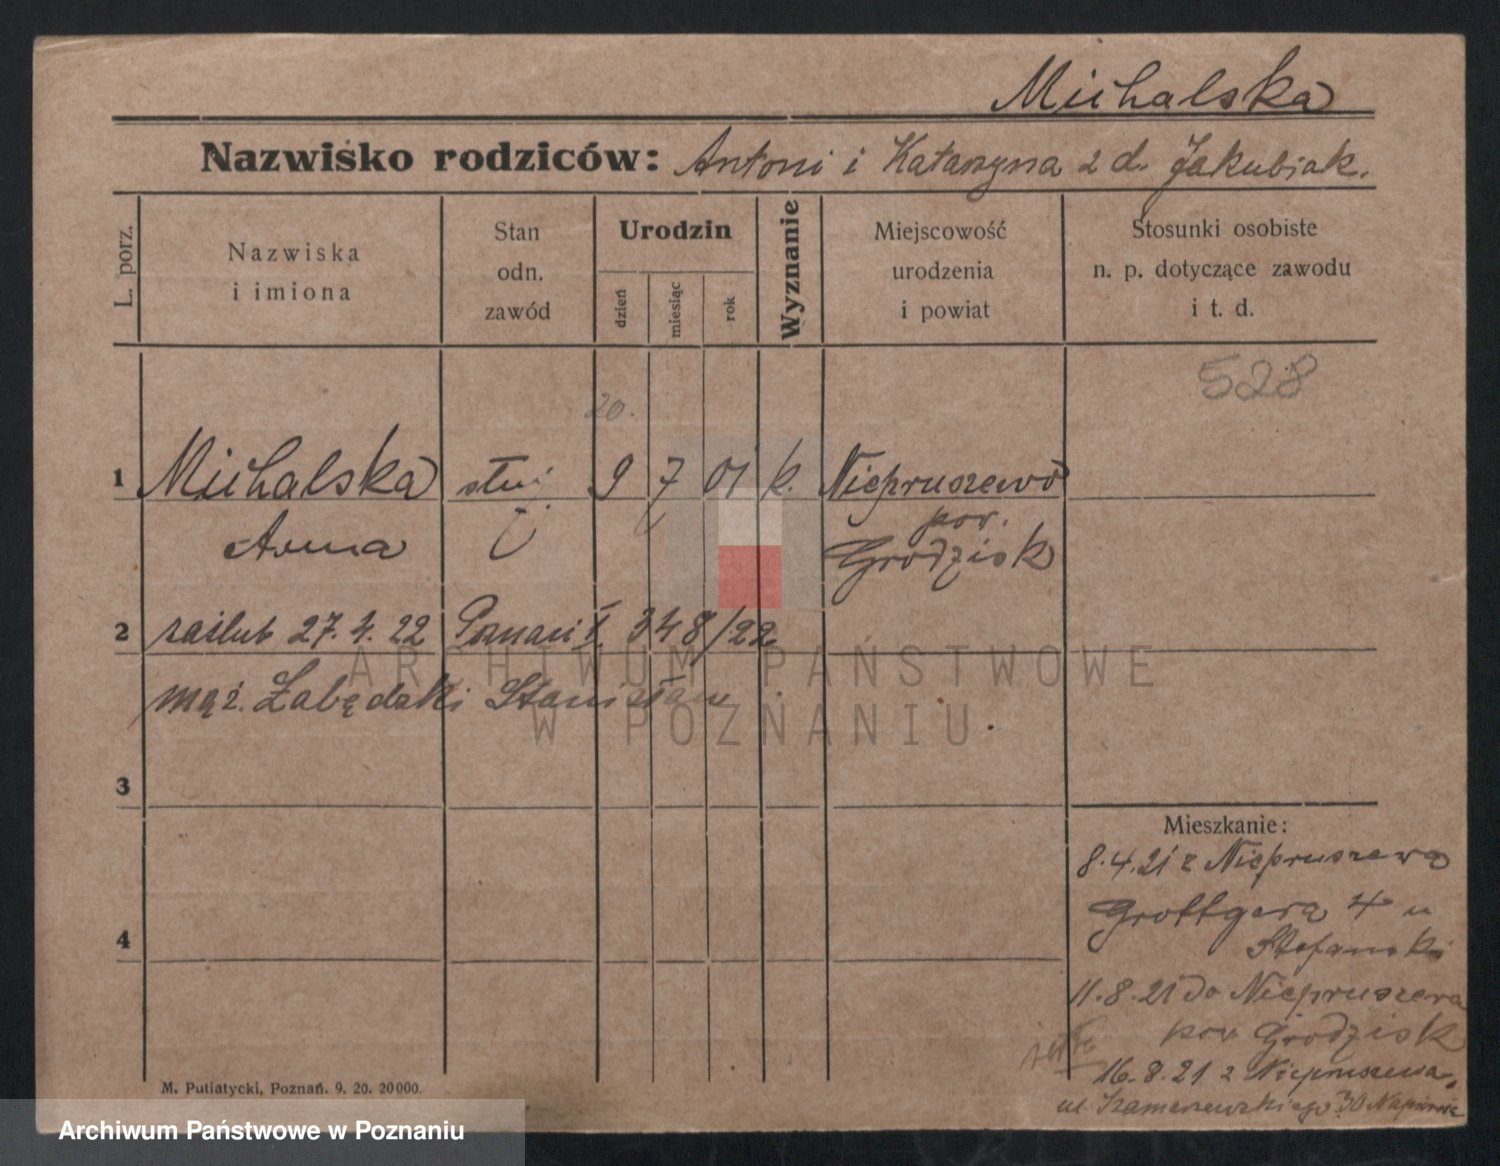 Michalska
Nazwisko rodziców: Antoni i Katarzyna z d. Jakubiak.
L. porz.
Nazwiska
i imiona
Stan
odn.
zawód
Urodzin
dzień
miesiąc
rok
Wyznanie
Miejscowość
urodzenia
i powiat
Stosunki osobiste
n. p. dotyczące zawodu
i t. d.
528
20.
1 Michalska służ 9 7 01 k. Niepruszewo
Anna pow.
Grodzisk
2 zaślub 27. 4. 22 Poznań I. 348/22
mąż. Łabędzki Stanisław
3
4
Mieszkanie:
8.4.21 z Niepruszewa
Grottgera 4 u
Stefanski
11.8.21 do Niepruszewa
pow. Grodzisk
16.8.21 z Niepruszewa,
ul. Szamarzewskiego 30
M. Putiatycki, Poznań. 9. 20. 20000.
ARCHIWUM PAŃSTWOWE
W POZNANIU
Archiwum Państwowe w Poznaniu